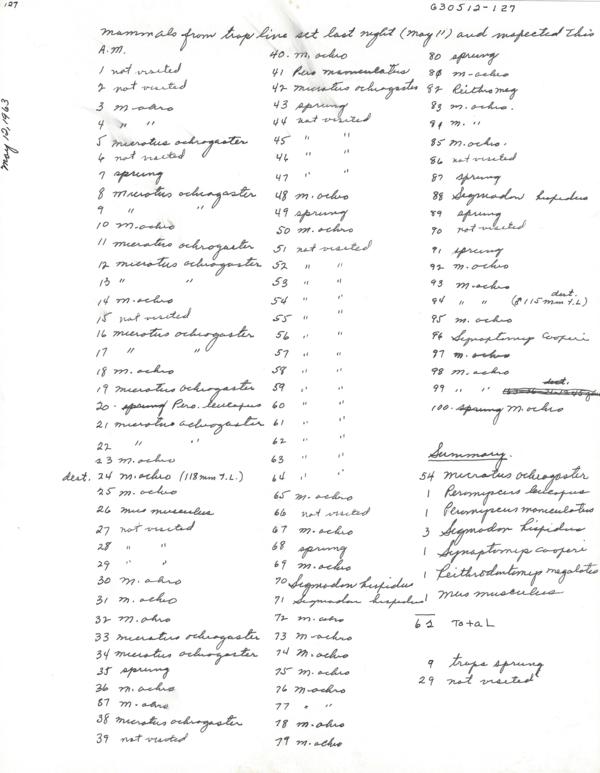 127
G30512-127
May 12, 1963
Mammals from trap line set last night (May 11) and inspected this
A.M.
1 not visited
2 not visited
3 m-ochro
4 " "
5 microtus ochrogaster
6 not visited
7 sprung
8 Microtus ochrogaster
9 " "
10 m.ochro
11 microtus ochrogaster
12 microtus ochrogaster
13 " "
14 m.ochro
15 not visited
16 microtus ochrogaster
17 " "
18 m.ochro
19 microtus ochrogaster
20 - sprung Pero. leucopus
21 microtus ochrogaster
22 " "
23 m.ochro
dest. 24 m.ochro (118mm T.L.)
25 m.ochro
26 mus musculus
27 not visited
28 " "
29 " "
30 m.ochro
31 m.ochro
32 m.ochro
33 microtus ochrogaster
34 microtus ochrogaster
35 sprung
36 m.ochro
37 m.ochro
38 microtus ochrogaster
39 not visited
40. m.ochro
41 Pero maniculatus
42 microtus ochrogaster
43 sprung
44 not visited
45 " "
46 " "
47 " "
48 m.ochro
49 sprung
50 m.ochro
51 not visited
52 " "
53 " "
54 " "
55 " "
56 " "
57 " "
58 " "
59 " "
60 " "
61 " "
62 " "
63 " "
64 " "
65 m.ochro
66 not visited
67 m.ochro
68 sprung
69 m.ochro
70 Sigmodon hispidus
71 Sigmodon hispidus
72 m.ochro
73 m-ochro
74 m.ochro
75 m.ochro
76 m-ochro
77 " "
78 m.ochro
79 m.ochro
80 sprung
81 m-ochro
82 Reithro meg
83 m.ochro.
84 m. "
85 m.ochro.
86 not visited
87 sprung
88 Sigmodon hispidus
89 sprung
90 not visited
91 sprung
92 m.ochro
93 m.ochro
94 " " dest. (♂ 115mm T.L)
95 m.ochro
96 Synaptomip cooperi
97 m.ochro
98 m.ochro
99 " " dest.
100 - sprung m.ochro
Summary.
54 microtus ochrogaster
1 Peromyscus leucopus
1 Peromyscus manculatus
3 Sigmodon hispidus
1 Synaptomip cooperi
1 Reithrodontomip megalotes
1 mus musculus
62 Total
9 traps sprung
29 not visited